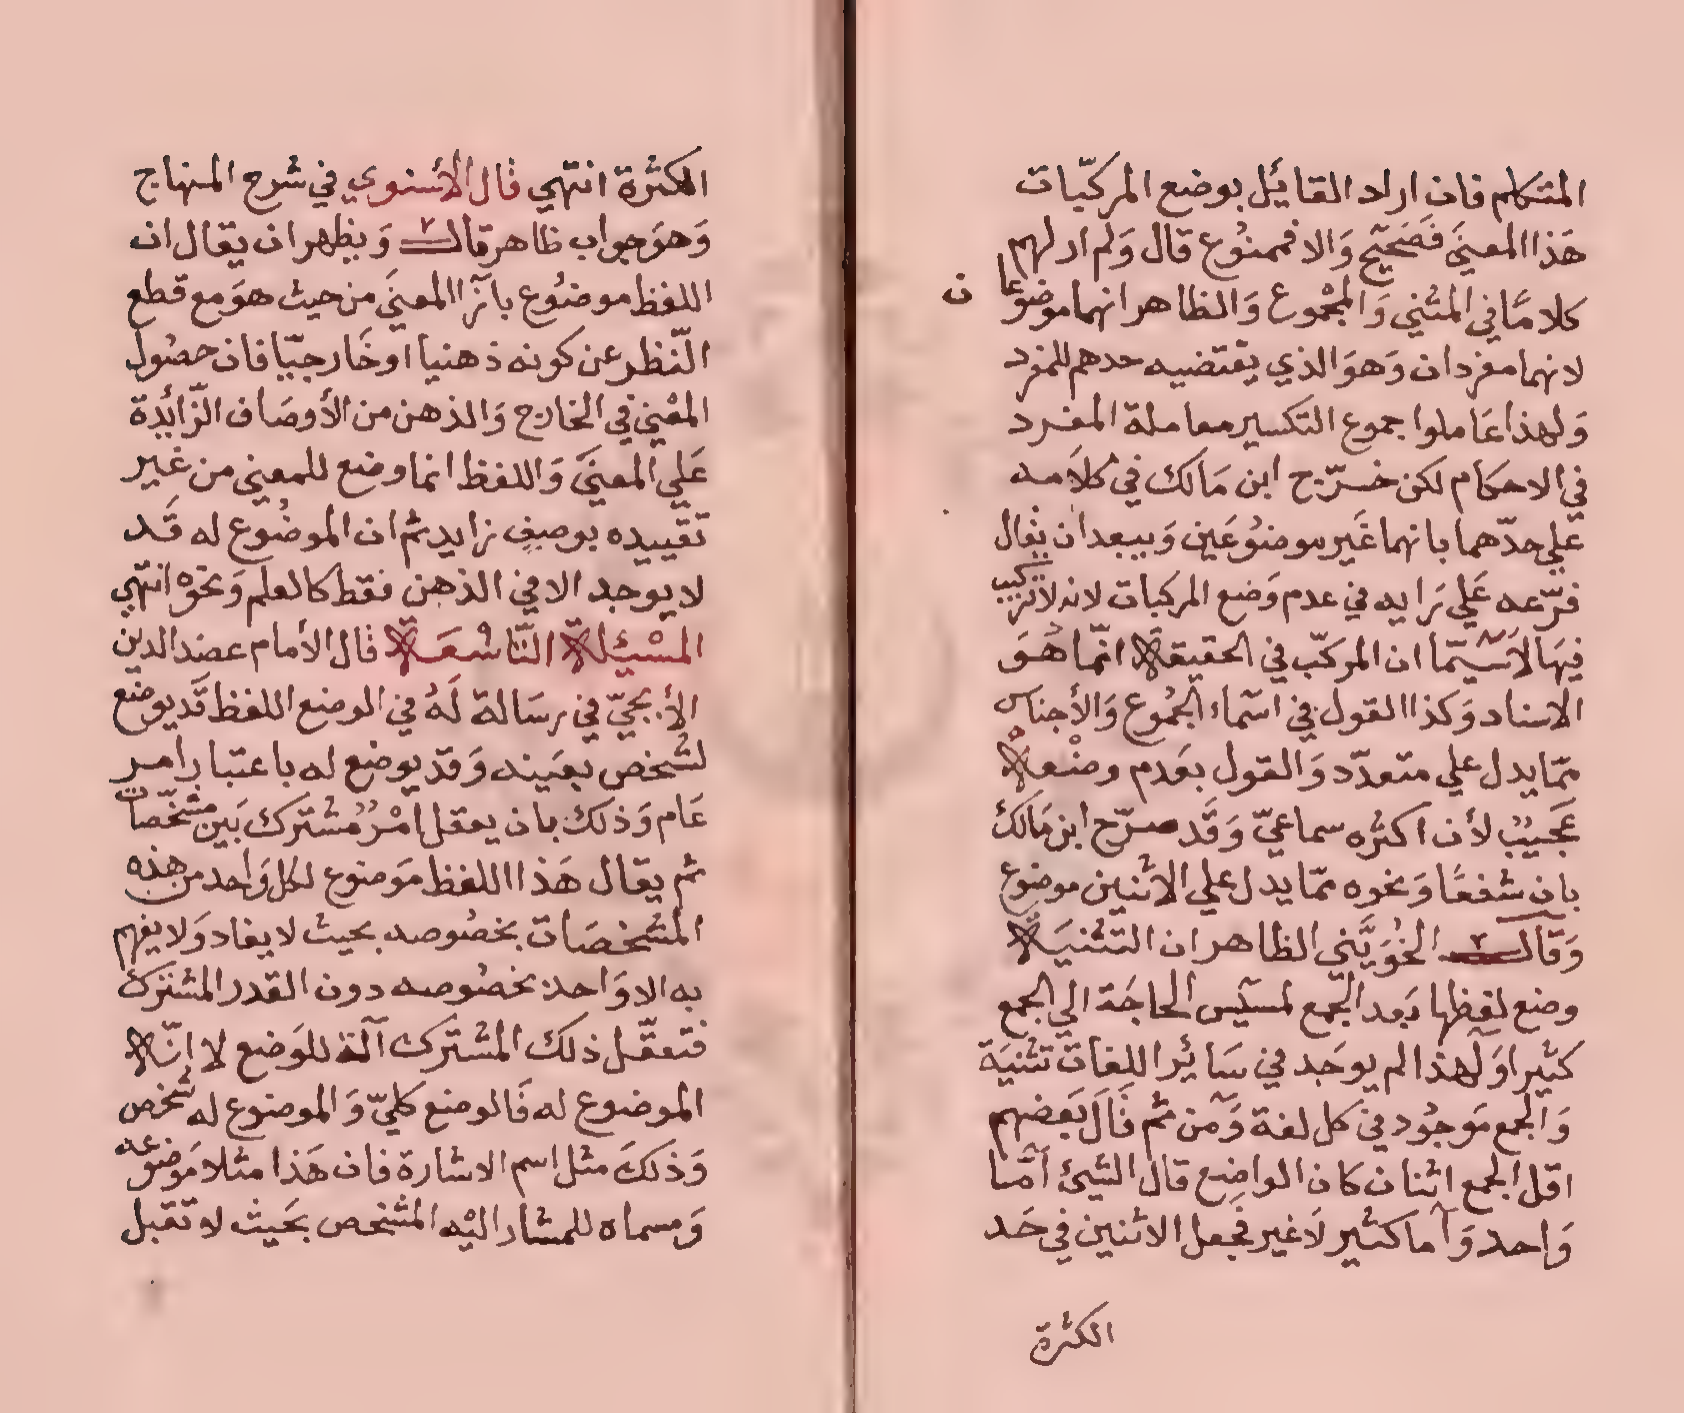 المتكلم فان اراد القائل بوضع المركبّات
هَذا المعنيَ فَصَحيَح وَالا فممنوُع قال وَلم ار لهم
كلامًا في المثني وَالمجْموع وَالظاهر انهما موضوعان
لانهما مفردان وَهوَ الذي يقتضيه حدهم للمفرد
وَلهذا عَاملوا جموع التكسير معاملة المفرد
في الاحكام لكن خرّج ابن مَالك في كلاَمه
علي حدّهما بانهما غَير موضوُعَين وَيبعد ان يقال
فرّعه عَلي رَايه في عدم وَضع المركبات لانه لا تركيب
فيهَا لاَسيّما ان المركبّ في الحقيقة انمّا هُوَ
الاسناد وَكذا القول في اسَماء الجُموع وَالأجناس
ممّا يدل علي متعدّد وَالقول بعَدم وضْعه
عَجيبُ لأن اكثره سماعيّ وَقَد صرّح ابن مَالك
بان شفعًا وَنحوه ممّا يدل علي الاثنين موضوع
وَقال الخُوَيّني الظاهر ان التثنيَة
وضع لفظها بَعد الجَمع لمسَيس الحاجَة الي الجمع
كثيرا وَلهذا لم يوجَد في سَائر اللغات تثنيَة
وَالجمع مَوجُود في كل لغة وَمن ثم قَالَ بَعضهم
اقل الجمع اثنان كان الواضِع قال الشيئ اَمّا
وَاحد وَاما كثير لاَغير فجعل الاثنين في حَد
الكثرة
الكثرة انتهي قال الأسنوي في شرح المنهاج
وَهوَ جواب ظاهر قال وَيظهر ان يقال ان
اللفظ موضوُع بازا المعنيَ من حيث هوَ مع قطع
النّظر عن كونه ذهنيا او خَارجيّا فان حصُول
المعْني في الخارج وَالذهن من الأوصَاف الزّائدة
عَلي المعنيَ وَاللفظ انما وضع للمعني من غير
تقييده بوصفٍ زايد ثم ان الموضُوع له قَد
لا يوجد الا في الذهن فقط كالعلم وَنحوه انتهي
المسْئلة التَّاسْعَة قال الأمام عضد الدين
الأيجيّ في رسَالة لَهُ في الوضع اللفظ قَد يوضَع
لشخص بعَينه وَقَد يوضع له باعتبار امر
عَام وَذلك بان يعقل امْرُ مُشْترك بَين مشخّصات
ثم يقال هَذا اللفظ مَوضوع لكل وَاحد من هذه
المشخصَات بخصُوصه بحيث لا يفاد وَلا يفهم
به الا وَاحد بخصُوصه دون القدر المشترك
فتعقّل ذلك المشترك آلة للوَضع لا انّه
الموضوع له فَالوضع كليّ وَالموضوع له شخص
وَذلكَ مثل اسم الاشارة فان هَذا مثلا مَوضوعه
وَمسماه للمشار اليْه المشخص بحَيث لا تقبل